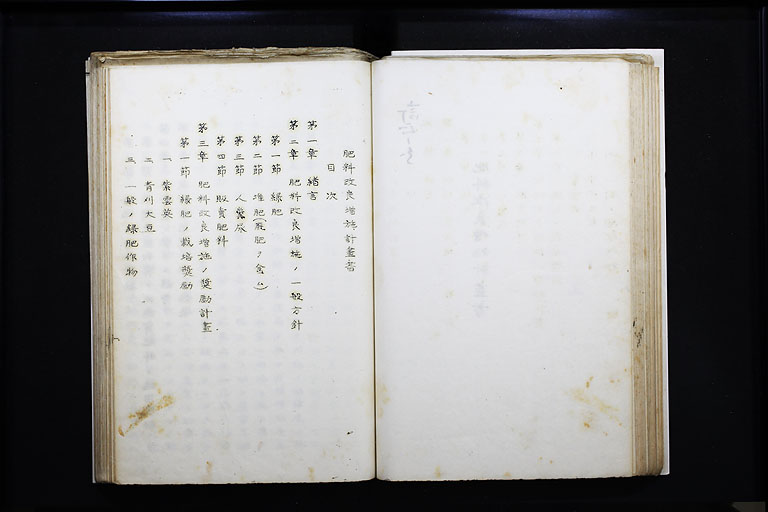 肥料改良增施計畫書
目次
第一章 緒言
第二章 肥料改良增施ノ一般方針
第一節 緑肥
第二節 堆肥(厩肥ヲ含ム)
第三節 人糞尿
第四節 販賣肥料
第三章 肥料改良增施ノ奬勵計畫
第一節 緑肥ノ栽培奬勵
一、紫雲英
二、青刈大豆
三、一般ノ緑肥作物